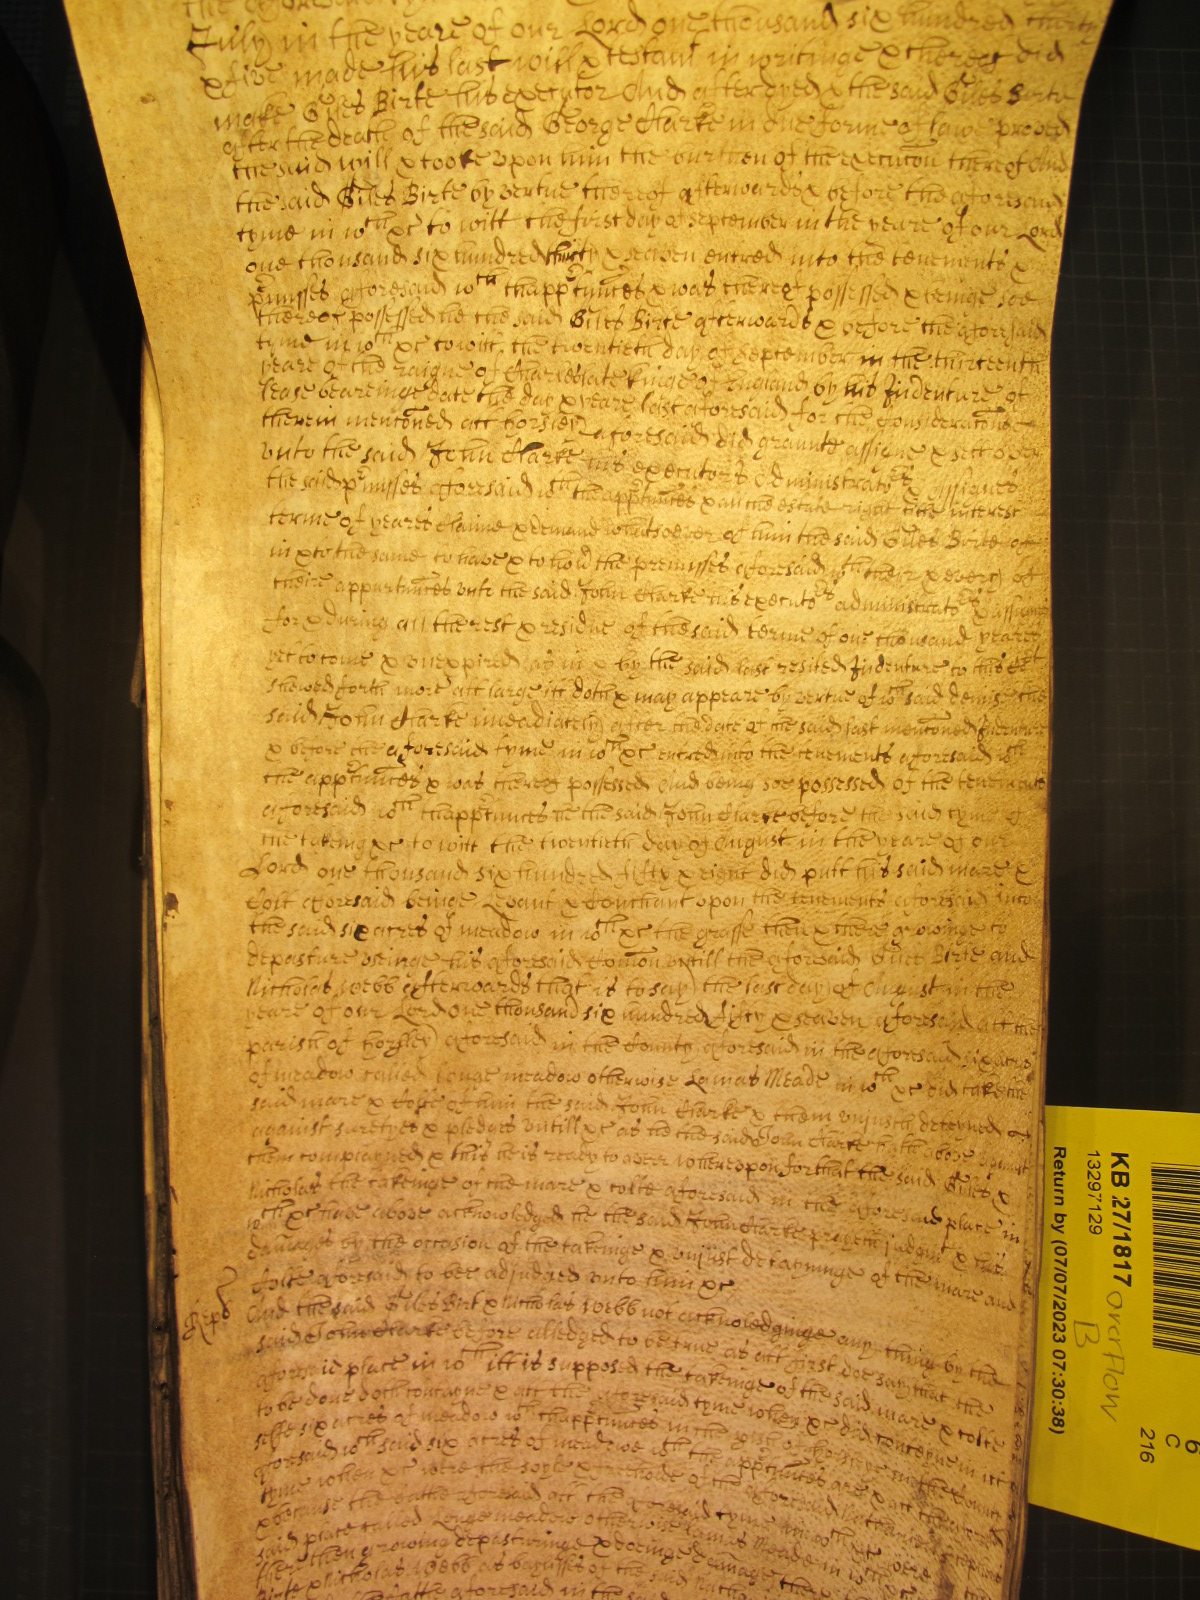 July in the yeare of our Lord one thousand six hundred thirty
x five made his last will x testamt in writinge x thereof did
make Giles Birte his executor And after dyed x the said Giles Birte
after the death of the said George Clarke in due forme of lawe proved
the said will x tooke upon him the burthen of the execution thereof And
the said Giles Birte by vertue thereof afterwards x before the aforesaid
tyme in wch xc to witt the first day of September in the yeare of our Lord
one thousand six hundred thirty x seaven entred into the tenements x
pmisses aforesaid wth thapptunces x was thereof possessed x beinge soe
thereof possessed he the said Giles Birte afterwards x before the aforesaid
tyme in wch xc to witt the twentieth day of September in the thirteenth
yeare of the raigne of Charles late kinge of England by his Indenture of
lease beareinge date the day x yeare last aforesaid for the consideracons
therein menconed att horsley aforesaid did graunte assigne x sett over
unto the said John Clarke his executors Administrators x Assignes
the said pmisses aforesaid wth the apptunces x all the estate right title interest
terme of yeares Claime x demand whatsoever of him the said Giles Birte of
in x to the same to have x to hold the premisses aforesaid wth their x every of
theire appurtunces unto the said John Clarke his executors administrators x assignes
for x during all the rest x residue of the said terme of one thousand yeares
yet to come x unexpired as in x by the said last resited Indenture to this Cort
shewed forth more att large itt doth x may appeare by vertue of wch said demise the
said John Clarke imeadiately after the date of the said last mentoned Indenture
x before the aforesaid tyme in wch xc entred into the tenements aforesaid wth
the apptunces x was thereof possessed And being soe possessed of the tenements
aforesaid wth thapptunces he the said John Clarke before the said tyme of
the takeing xc to witt the twentieth day of August in the yeare of our
Lord one thousand six hundred fifty x eight did putt his said mare x
Colt aforesaid beinge Levant x Couchant upon the tenements aforesaid into
the said six acres of meadow in wch xc the grasse then x there growinge to
depasture useinge his aforesaid Comon untill the aforesaid Giles Birte and
Nicholas Webb afterwards that is to say the last day of August in the
yeare of our Lord one thousand six hundred fifty x seaven aforesaid att the
parish of horsley aforesaid in the County aforesaid in the aforesaid six acres
of meadow called Longe meadow otherwise Lamas Meade in wch xc did take the
said mare x Colte of him the said John Clarke x them unjustly deteyned
against suretyes x pledges untill xc as he the said John Clarke hath above against
them complayned x this he is ready to averr whereupon for that the said Giles x
Nicholas the takeinge of the mare x colte aforesaid in the aforesaid place in
wch xc have above acknowledged he the said John Clarke prayeth judgmt x his
damages by the occasion of the takeinge x unjust detayninge of the mare and
Colte aforesaid to bee adjudged unto him xc
Repl
And the said Giles Birt x Nicholas Webb not acknowledginge any thing by the
said John Clarke before alledged to be true as att first doe say that the
aforesaid place in wch itt is supposed the takeinge of the said mare x colte
to be done doth contayne x att the aforesaid tyme when xc did conteyne in itt
selfe six acres of meadow wth thapptunces in the pish of horsley in the County
aforesaid wch said six acres of meadow wth the apptunces are x att the aforesaid
tyme when xc were the soyle x freehold of the aforesaid
x because the Cattle aforesaid att the aforesaid tyme in wch xc were
said place called Longe meadow otherwise Lamas Meade in wch xc
there then growing depasturinge x doeinge damage there
Birte x Nicholas Webb as bayliffes of the said
the aforesaid in the said
KB 27/1817
13297129
Return by (07/07/2023 07:30:38)
overflow
B
6
C
216